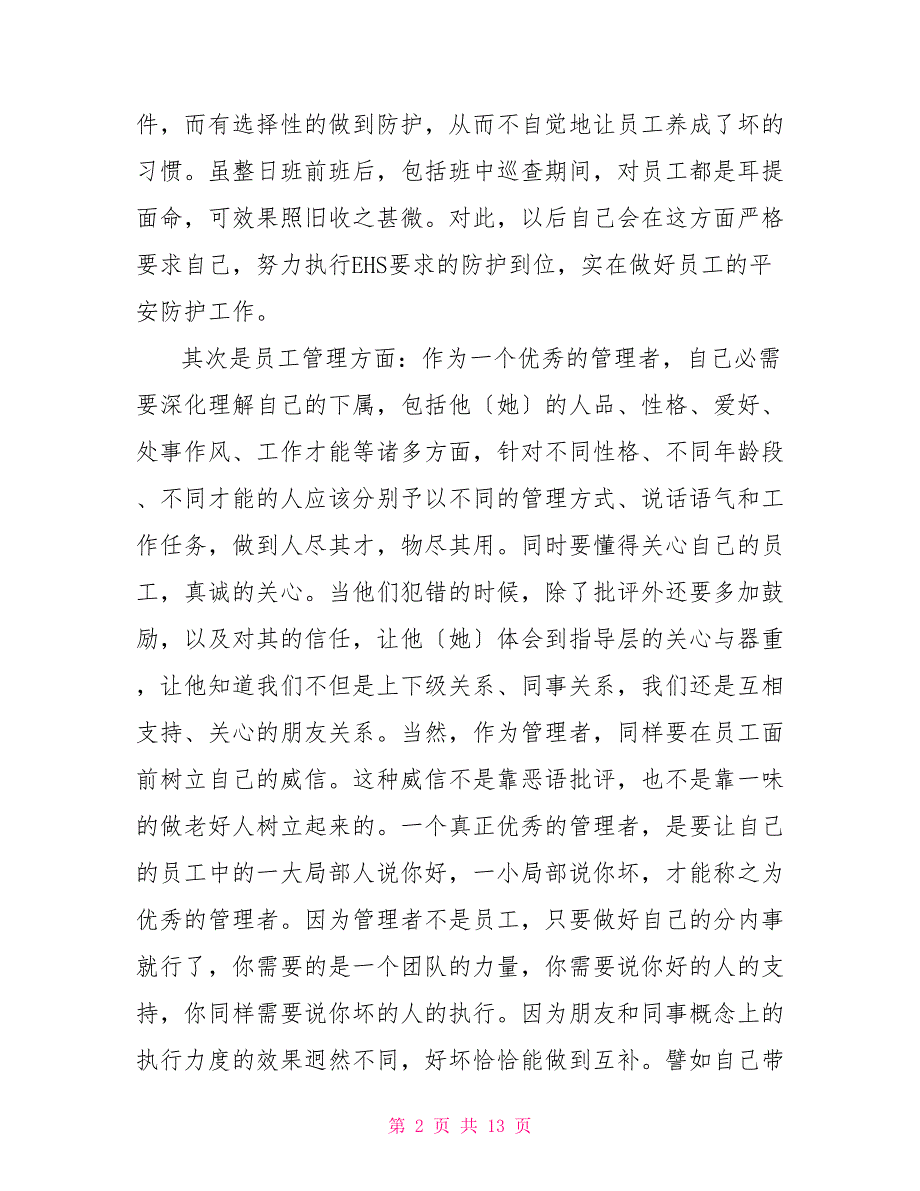 件，而有选择性的做到防护，从而不自觉地让员工养成了坏的
习惯。虽整日班前班后，包括班中巡查期间，对员工都是耳提
面命，可效果照旧收之甚微。对此，以后自己会在这方面严格
要求自己，努力执行EHS要求的防护到位，实在做好员工的平
安防护工作。
其次是员工管理方面：作为一个优秀的管理者，自己必需
要深化理解自己的下属，包括他〔她〕的人品、性格、爱好、
处事作风、工作才能等诸多方面，针对不同性格、不同年龄段
、不同才能的人应该分别予以不同的管理方式、说话语气和工
作任务，做到人尽其才，物尽其用。同时要懂得关心自己的员
工，真诚的关心。当他们犯错的时候，除了批评外还要多加鼓
励，以及对其的信任，让他〔她〕体会到指导层的关心与器重
，让他知道我们不但是上下级关系、同事关系，我们还是互相
支持、关心的朋友关系。当然，作为管理者，同样要在员工面
前树立自己的威信。这种威信不是靠恶语批评，也不是靠一味
的做老好人树立起来的。一个真正优秀的管理者，是要让自己
的员工中的一大局部人说你好，一小局部说你坏，才能称之为
优秀的管理者。因为管理者不是员工，只要做好自己的分内事
就行了，你需要的是一个团队的力量，你需要说你好的人的支
持，你同样需要说你坏的人的执行。因为朋友和同事概念上的
执行力度的效果迥然不同，好坏恰恰能做到互补。譬如自己带
第 2 页 共 13 页